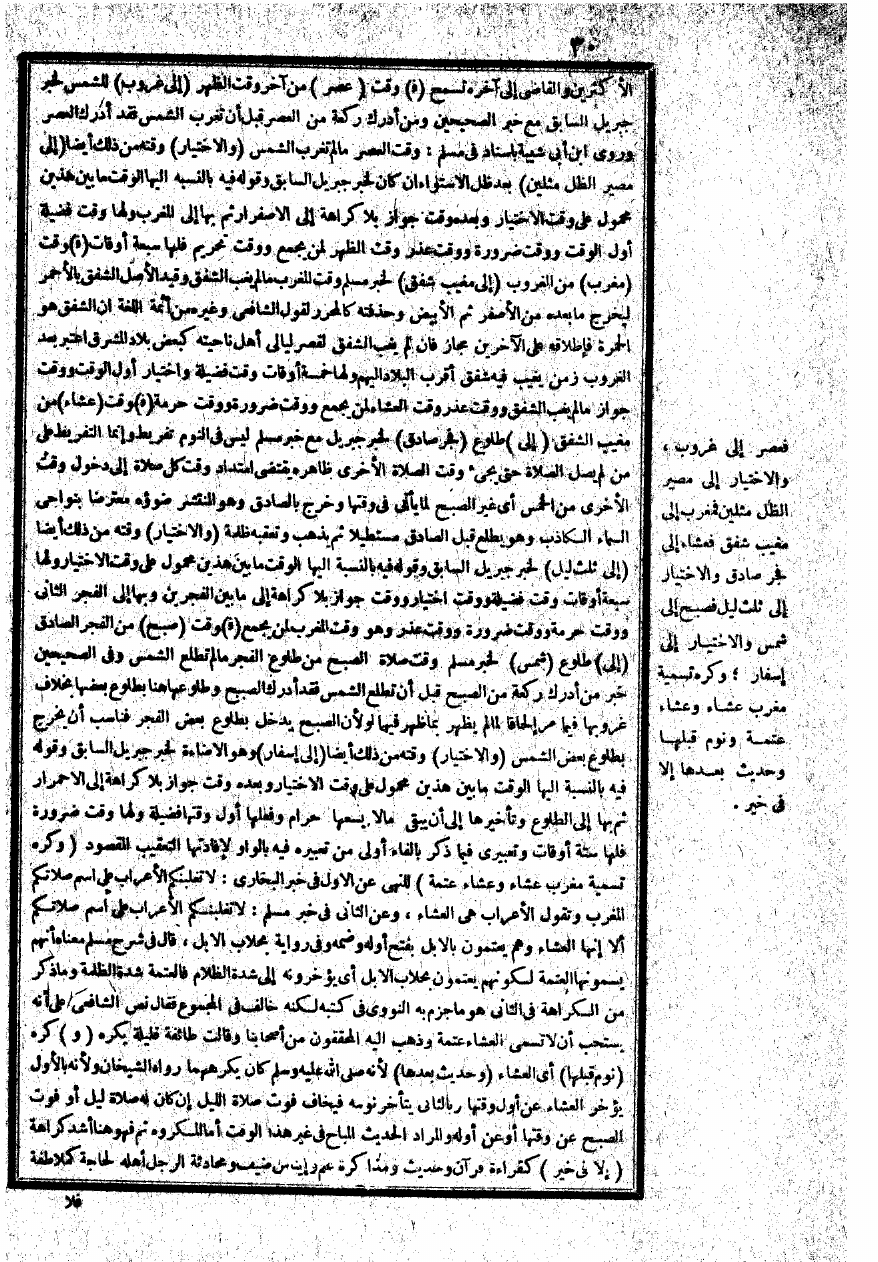 ٣٠
الأكثرين والقاضى إلى آخره تسمح (ف) وقت (عصر) من آخر وقت الظهر (إلى غروب) للشمس لخبر
جبريل السابق مع خبر الصحيحين ومن أدرك ركعة من العصر قبل أن تغرب الشمس فقد أدرك العصر
وروى ابن أبى شيبة باسناد فى مسلم : وقت العصر مالم تغرب الشمس (والاختيار) وقته من ذلك أيضا (إلى
مصير الظل مثلين) بعد ظل الاستواء ان كان لخبر جبريل السابق وقوله فيه بالنسبة اليها الوقت ما بين هذين
محمول على وقت الاختيار وبعده وقت جواز بلا كراهة إلى الاصفرار ثم بها إلى الغروب ولها وقت فضيلة
أول الوقت ووقت ضرورة ووقت عذر وقت الظهر لمن يجمع ووقت تحريم فلها سبعة أوقات (ف) وقت
(مغرب) من الغروب (إلى مغيب شفق) لخبر مسلم وقت المغرب مالم يغب الشفق وقيد الأصل الشفق بالأحمر
ليخرج ما بعده من الأصفر ثم الأبيض وحذفته كالمحرر لقول الشافعى وغيره من أئمة اللغة ان الشفق هو
الحمرة فإطلاقه على الآخرين مجاز فان لم يغب الشفق لقصر ليالى أهل ناحيته كبعض بلاد المشرق اعتبر بعد
الغروب زمن يغيب فيه شفق أقرب البلاد اليهم ولها خمسة أوقات وقت فضيلة واختيار أول الوقت ووقت
جواز مالم يغب الشفق ووقت عذر وقت العشاء لمن يجمع ووقت ضرورة ووقت حرمة (ف) وقت (عشاء) من
مغيب الشفق (إلى) طلوع (فجر صادق) لخبر جبريل مع خبر مسلم ليس فى النوم تفريط وإنما التفريط على
من لم يصل الصلاة حتى يجىء وقت الصلاة الأخرى ظاهره يقتضى امتداد وقت كل صلاة إلى دخول وقت
الأخرى من الخمس أى غير الصبح لما يأتى فى وقتها وخرج بالصادق وهو المنتشر ضوؤه معترضا بنواحى
السماء الكاذب وهو يطلع قبل الصادق مستطيلا ثم يذهب وتعقبه ظلمة (والاختيار) وقته من ذلك أيضا
(إلى ثلث ليل) لخبر جبريل السابق وقوله فيه بالنسبة اليها الوقت ما بين هذين محمول على وقت الاختيار ولها
سبعة أوقات وقت فضيلة ووقت اختيار ووقت جواز بلا كراهة إلى ما بين الفجرين وبها إلى الفجر الثانى
ووقت حرمة ووقت ضرورة ووقت عذر وهو وقت المغرب لمن يجمع (ف) وقت (صبح) من الفجر الصادق
(إلى) طلوع (شمس) لخبر مسلم وقت صلاة الصبح من طلوع الفجر مالم تطلع الشمس وفى الصحيحين
خبر من أدرك ركعة من الصبح قبل أن تطلع الشمس فقد أدرك الصبح وطلوعها هنا بطلوع بعضها بخلاف
غروبها فيما مر إلحاقا لما لم يظهر بما ظهر فيهما ولأن الصبح يدخل بطلوع بعض الفجر فناسب أن يخرج
بطلوع بعض الشمس (والاختيار) وقته من ذلك أيضا (إلى إسفار) وهو الاضاءة لخبر جبريل السابق وقوله
فيه بالنسبة اليها الوقت ما بين هذين محمول على وقت الاختيار وبعده وقت جواز بلا كراهة إلى الاحمرار
ثم بها إلى الطلوع وتأخيرها إلى أن يبقى مالا يسعها حرام وفعلها أول وقتها فضيلة ولها وقت ضرورة
فلها ستة أوقات وتعبيرى فيما ذكر بالفاء أولى من تعبيره فيه بالواو لإفادتها التعقيب المقصود (وكره
تسمية مغرب عشاء وعشاء عتمة) للنهى عن الاول فى خبر البخارى : لا تغلبنكم الأعراب على اسم صلاتكم
المغرب وتقول الأعراب هى العشاء ، وعن الثانى فى خبر مسلم : لا تغلبنكم الأعراب على اسم صلاتكم
ألا إنها العشاء وهم يعتمون بالابل بفتح أوله وضمه وفى رواية بحلاب الابل ، قال فى شرح مسلم معناه أنهم
يسمونها العتمة لكونهم يعتمون بحلاب الابل أى يؤخرونه إلى شدة الظلام فالعتمة شدة الظلمة وما ذكر
من الكراهة فى الثانى هو ما جزم به النووى فى كتبه لكنه خالف فى المجموع فقال نص الشافعى على أنه
يستحب أن لا تسمى العشاء عتمة وذهب اليه المحققون من أصحابنا وقالت طائفة قليلة يكره (و) كره
(نوم قبلها) أى العشاء (وحديث بعدها) لأنه صلى الله عليه وسلم كان يكرههما رواه الشيخان ولأنه بالأول
يؤخر العشاء عن أول وقتها وبالثانى يتأخر نومه فيخاف فوت صلاة الليل إن كان له صلاة ليل أو فوت
الصبح عن وقتها أو عن أوله والمراد الحديث المباح فى غير هذا الوقت أما المكروه ثم فهو هنا أشد كراهة
(إلا فى خير) كقراءة قرآن وحديث ومذاكرة علم وإيناس ضيف ومحادثة الرجل أهله لحاجة كملاطفة
فلا
فعصر إلى غروب ،
والاختيار إلى مصير
الظل مثلين فمغرب إلى
مغيب شفق فعشاء إلى
فجر صادق والاختيار
إلى ثلث ليل فصبح إلى
شمس والاختيار إلى
إسفار ؛ وكره تسمية
مغرب عشاء وعشاء
عتمة ونوم قبلها
وحديث بعدها إلا
فى خير .